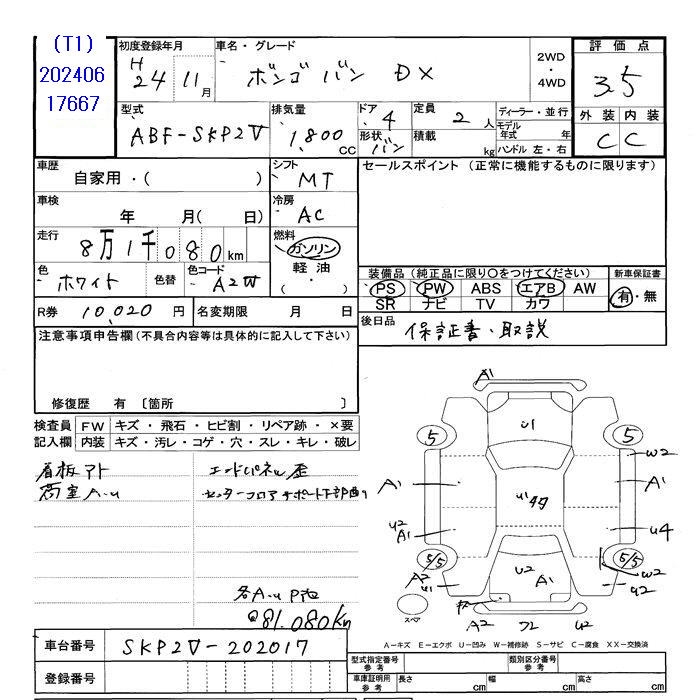 (T1)
202406
17667
初度登録年月
H
24 11月
車名・グレード
ボンゴ バン DX
2WD
・
4WD
評価点
3.5
型式
ABF-SKP2V
排気量
1,800
cc
ドア 4
形状 バン
定員 2 人
積載 kg
ディーラー・並行
モデル年式 年
ハンドル 左・右
外装 内装
C C
車歴
自家用・( )
シフト
MT
セールスポイント (正常に機能するものに限ります)
車検
年 月( 日)
冷房
AC
走行
8万1千080km
燃料
ガソリン
軽油
( ・ )
色
ホワイト
色替
色コード
A2W
装備品(純正品に限り○をつけてください)
新車保証書
PS PW ABS エアB AW
SR ナビ TV カワ
有・無
R券 10,020 円
名変期限 月 日
後日品
保証書・取説
注意事項申告欄(不具合内容等は具体的に記入して下さい)
修復歴 有 〔箇所 〕
検査員 FW キズ・飛石・ヒビ割・リペア跡・×要
記入欄 内装 キズ・汚レ・コゲ・穴・スレ・キレ・破レ
看板アト
荷室A.u
エンドパネル歪
センターフロアサポート下部凹り
各A.u P他
@81.080km
A1
U1
5 5
W2
A1 A1
U1
U2
A1
U4
5/5 5/5
A2
U1
U2
A1
W2
U2
スペア
A2 U2
A-キズ E-エクボ U-凹み W-補修跡 S-サビ C-腐食 XX-交換済
車台番号 SKP2V-202017
登録番号
型式指定番号
参考
類別区分番号
参考
車庫証明用
参考
長さ cm
幅 cm
高さ cm